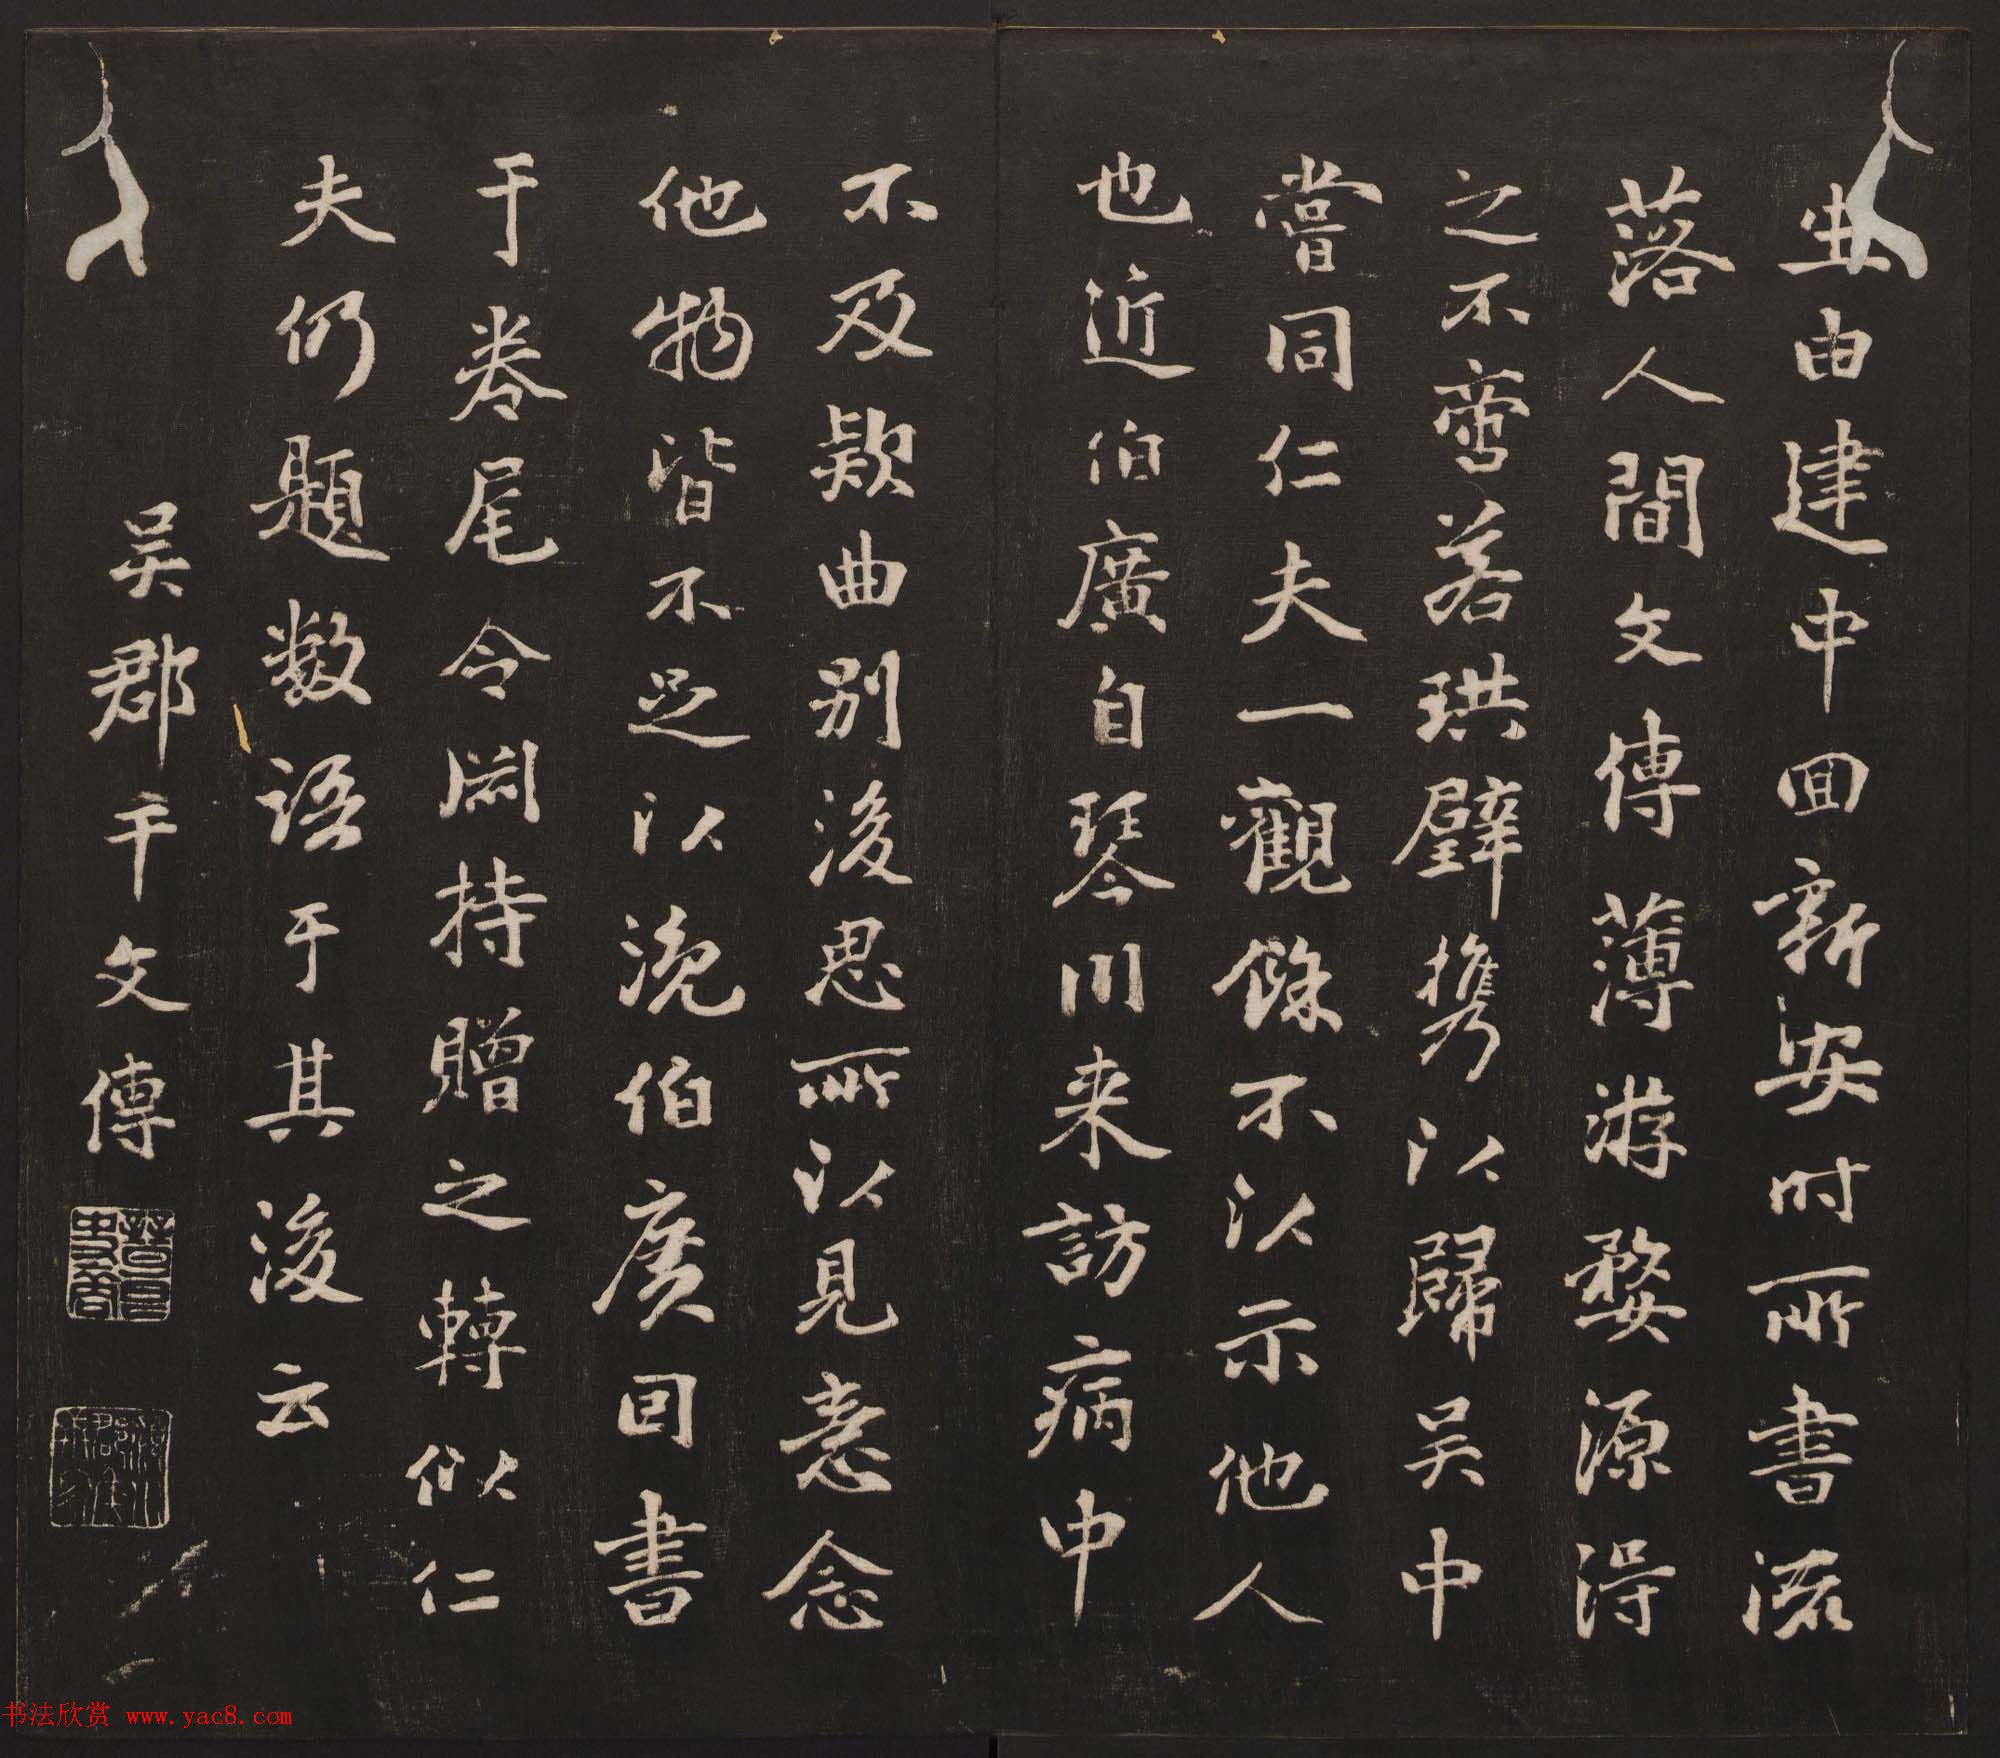 生由建中回新安时所書流
落人間文傳薄游婺源淂
之不啻若珙璧携以歸吴中
嘗同仁夫一觀餘不以示他人
也近伯廣自琴川来訪病中
不及欵曲别後思所以見意念
他物皆不足以浼伯廣囬書
于卷尾令渊持贈之轉似仁
夫仍題数語于其後云
吴郡干文傳
书法欣赏 www.yac8.com